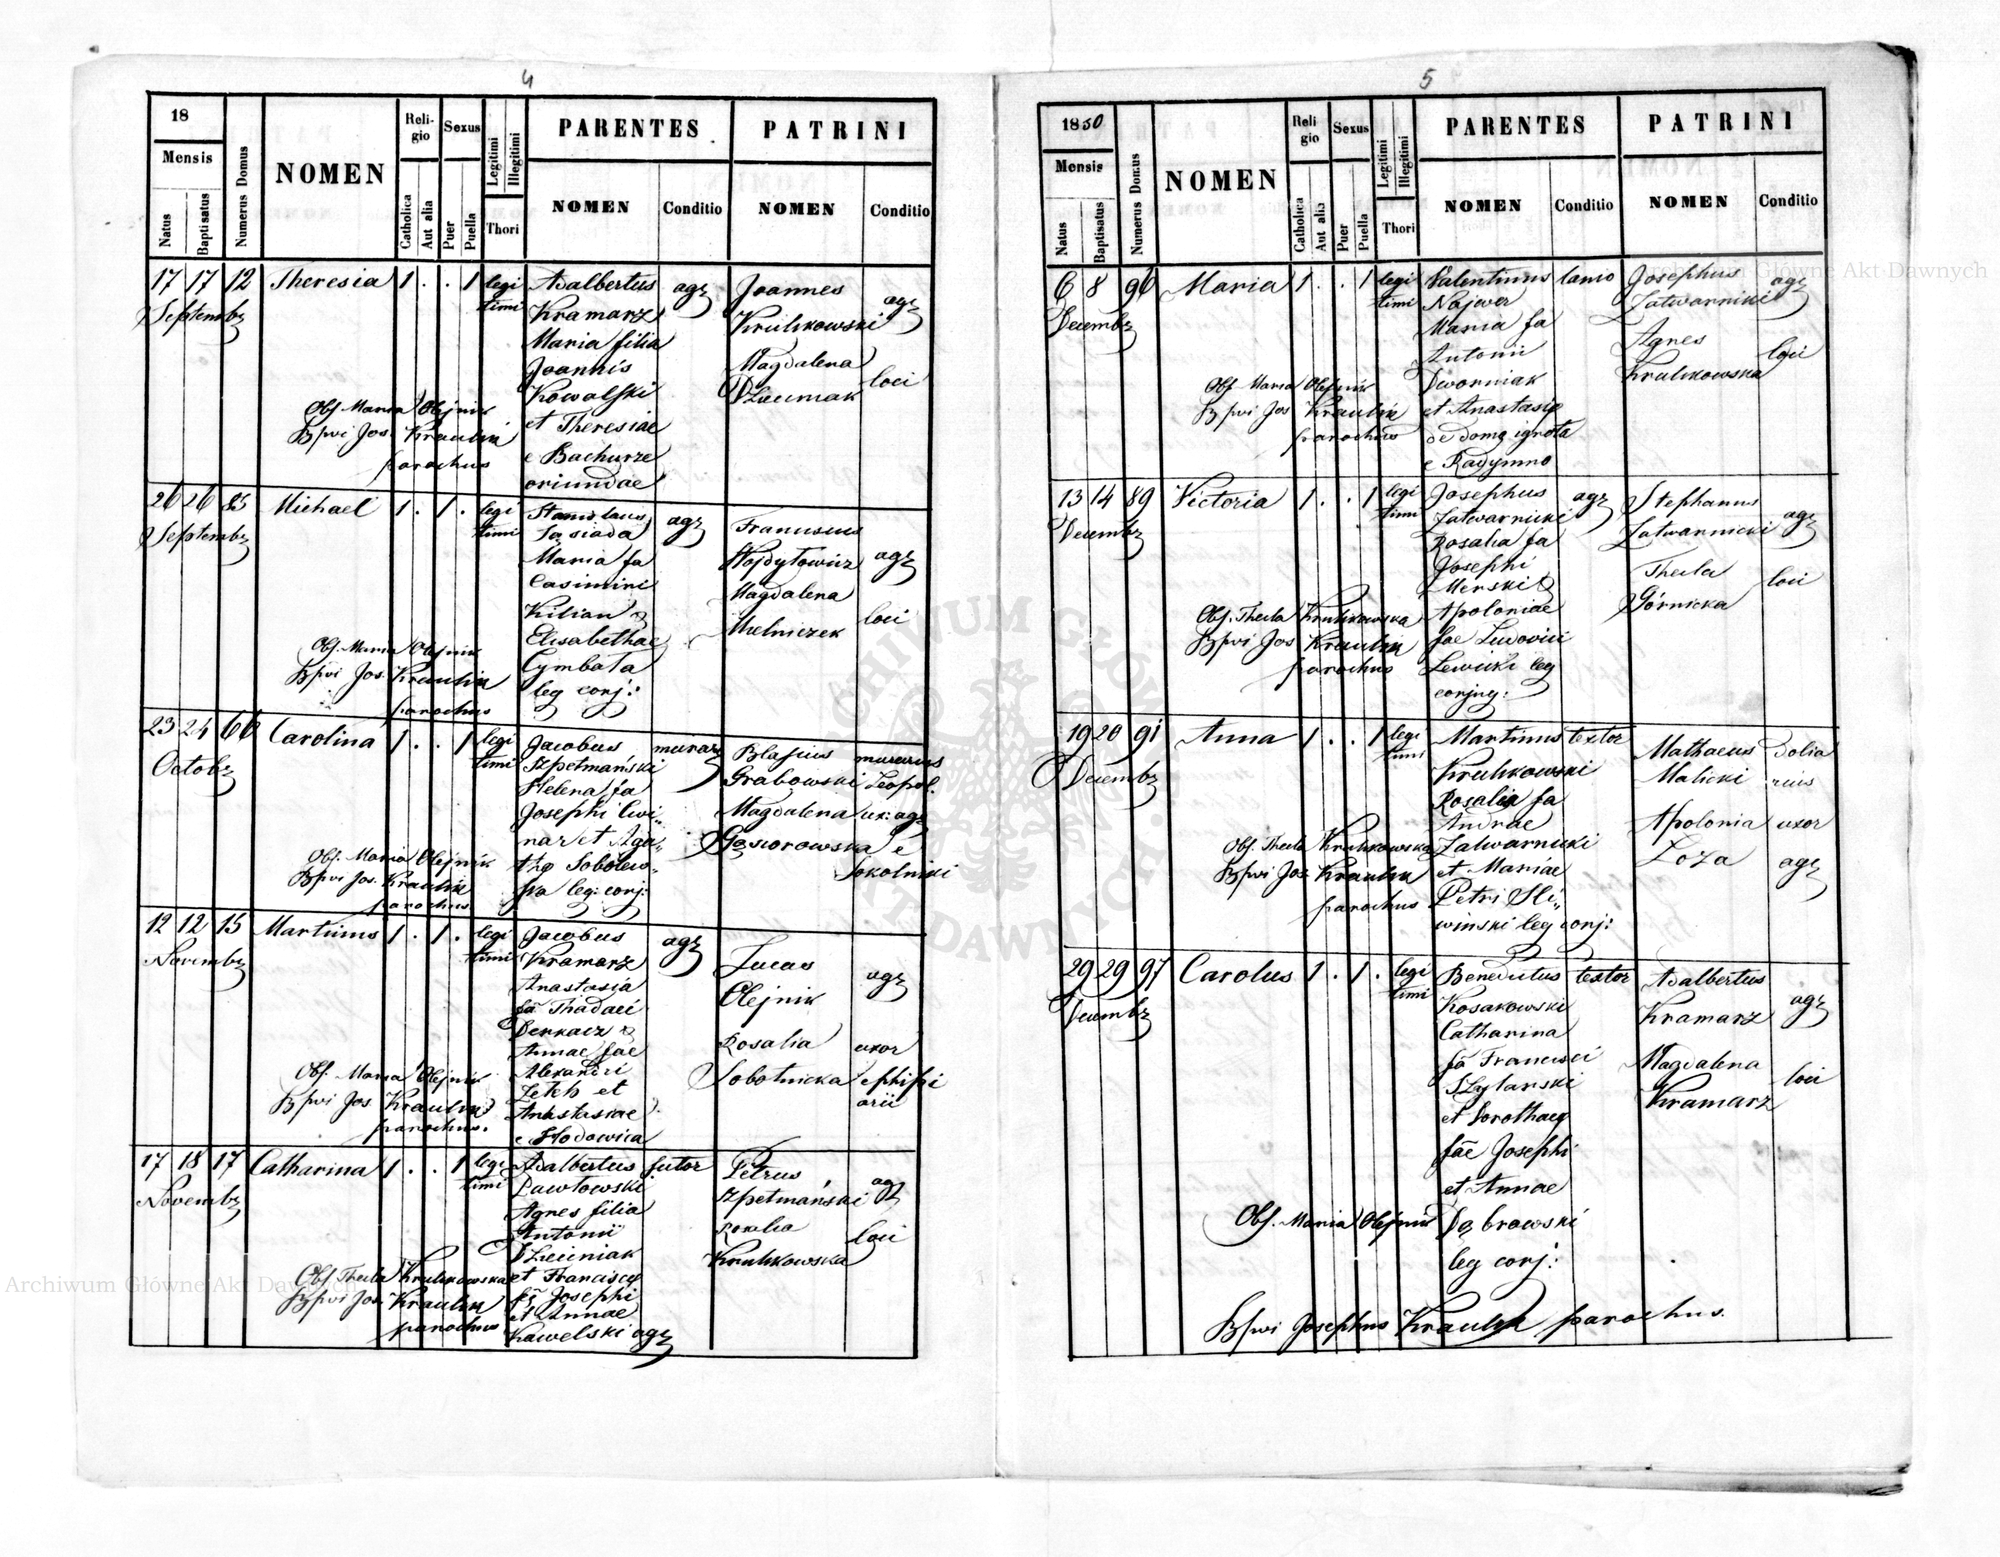 4
18
Mensis
Natus
Baptisatus
Numerus Domus
NOMEN
Reli-
gio
Catholica
Aut alia
Sexus
Puer
Puella
Legitimi
Illegitimi
Thori
PARENTES
NOMEN
Conditio
PATRINI
NOMEN
Conditio
17 17 12 Theresia 1 . . 1 legi
timi
Septembr
Adalbertus agr
Kramarz
Maria filia
Joannis
Kowalski
et Theresiae
e Bachurze
oriundae
Joannes agr
Krulikowski
Magdalena
Dzieciniak loci
Obs. Maria Olejnik
Bpvi Jos. Kraulik
parochus
26 26 85 Michael 1 . 1 . legi
timi
Septembr
Stanislaus agr
Sąsiada
Maria fa
Casimiri
Kilian &
Elisabethae
Cymbala
leg conj:
Franciscus
Wojdytowicz agr
Magdalena
Mielniczek loci
Obs. Maria Olejnik
Bpvi Jos. Kraulik
parochus
23 24 66 Carolina 1 . . 1 legi
timi
Octobr
Jacobus murar
Szpetmański
Helena fa
Josephi Cwi-
nar et Aga-
thae Sobolew-
ska leg: conj:
Blasius murarius
Grabowski Leopol.
Magdalena ux: agr
Gąsiorowska e
Sokolniki
Obs. Maria Olejnik
Bpvi Jos. Kraulik
parochus
12 12 15 Martinus 1 . 1 . legi
timi
Novembr
Jacobus agr
Kramarz
Anastasia
fa Thadaei
Derkacz &
Annae fae
Alexandri
et
Anastasiae
e Hodowica
Lucas agr
Olejnik
Rosalia uxor
Sobotnicka ephipi
arii
Obs. Maria Olejnik
Bpvi Jos. Kraulik
parochus.
17 18 17 Catharina 1 . . 1 legi
timi
Novembr
Adalbertus sutor
Pawłowski
Agnes filia
Antonii
Dzieciniak
et Franciscae
fae Josephi
et Annae
Kawelski agr
Petrus
Szpetmański agr
Rosalia
Krulikowska loci
Obs. Thecla Krulikowska
Bpvi Jos. Kraulik
parochus
5
1850
Mensis
Natus
Baptisatus
Numerus Domus
NOMEN
Reli
gio
Catholica
Aut alia
Sexus
Puer
Puella
Legitimi
Illegitimi
Thori
PARENTES
NOMEN
Conditio
PATRINI
NOMEN
Conditio
6 8 96 Maria 1 . . 1 legi
timi
Decembr
Valentinus lanio
Najwer
Maria fa
Antonii
Dworniak
et Anastasiae
de domo ignota
e Radymno
Josephus agr
Zatwarnicki
Agnes loci
Krulikowska
Obs. Maria Olejnik
Bpvi Jos Kraulik
parochus
13 14 89 Victoria 1 . . 1 legi
timi
Decembr
Josephus agr
Zatwarnicki
Rosalia fa
Josephi
Merski &
Apoloniae
fae Ludovici
Lewicki leg
conjug:
Stephanus
Zatwarnicki agr
Thecla loci
Górnicka
Obs. Thecla Krulikowska
Bpvi Jos Kraulik
parochus
19 20 91 Anna 1 . . 1 legi
timi
Decembr
Martinus textor
Krulikowski
Rosalia fa
Andreae
Zatwarnicki
et Mariae
Petri Sli-
winski leg conj:
Mathaeus dolia
Malicki rius
Apolonia uxor
Loza agr
Obs. Thecla Krulikowska
Bpvi Jos. Kraulik
parochus
29 29 97 Carolus 1 . 1 . legi
timi
Decembr
Benedictus textor
Kosakowski
Catharina
fa Francisci
Szylarski
et Dorotheae
fae Josephi
et Annae
Dąbrowski
leg conj:
Adalbertus agr
Kramarz
Magdalena loci
Kramarz
Obs. Maria Olejnik
Bpvi Josephus Kraulik parochus.
ARCHIWUM GŁÓWNE AKT DAWNYCH
Archiwum Główne Akt Dawnych
Archiwum Główne Akt Dawnych